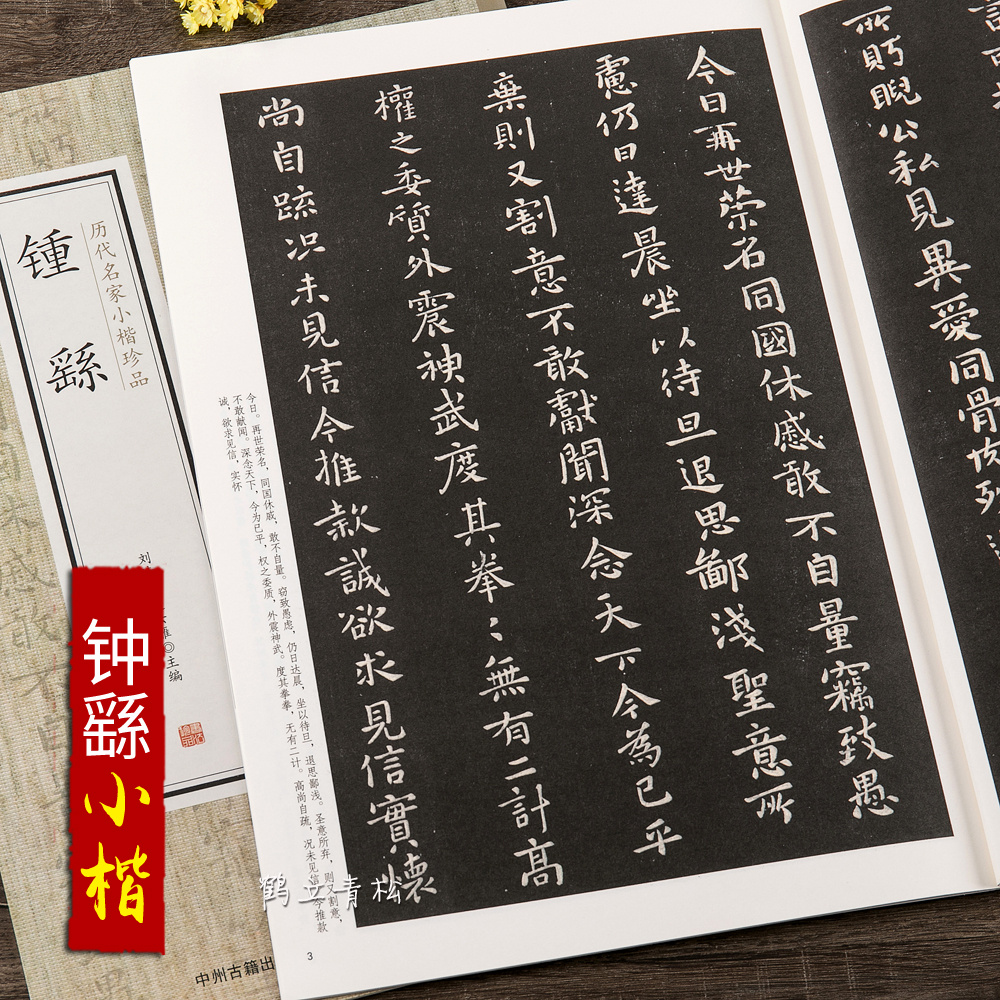 今日再世榮名同國休慼敢不自量竊致愚
慮仍日達晨坐以待旦退思鄙淺聖意所
棄則又割意不敢獻聞深念天下今為已平
權之委質外震神武度其拳〻無有二計高
尚自疏况未見信今推款誠欲求見信實懷
公私見異愛同骨
今日。再世荣名，同国休戚，敢不自量。窃致愚虑，仍日达晨，坐以待旦，退思鄙浅。圣意所弃，则又割意，
不敢献闻。深念天下，今为已平，权之委质，外震神武。度其拳拳，无有二计。高尚自疏，况未见信，今推款
诚，欲求见信，实怀
3
历代名家小楷珍品
锺繇
刘
主编
中州古籍出
钟繇小楷
鹤立青松